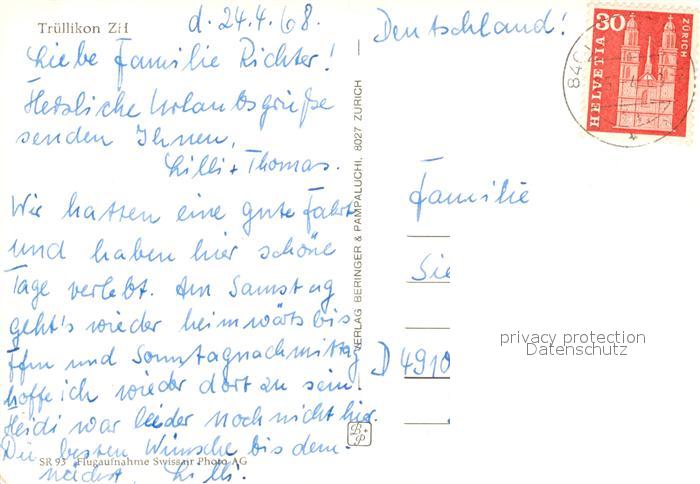 Trüllikon ZH
d. 24.4.68.
Liebe Familie Richter!
Herzliche Urlaubsgrüße
senden Ihnen,
Lilli + Thomas.
Wir hatten eine gute Fahrt
und haben hier schöne
Tage verlebt. Am Samstag
geht's wieder heimwärts bis
Ffm und Sonntagnachmittag
hoffe ich wieder dort zu sein.
Heidi war leider noch nicht hier.
Die besten Wünsche bis dem-
nächst, Lilli.
SR 93 Flugaufnahme Swissair Photo AG
VERLAG BERINGER & PAMPALUCHI, 8027 ZÜRICH
B+P
Deutschland!
30
ZÜRICH
HELVETIA
840
Familie
D 4910
privacy protection
Datenschutz